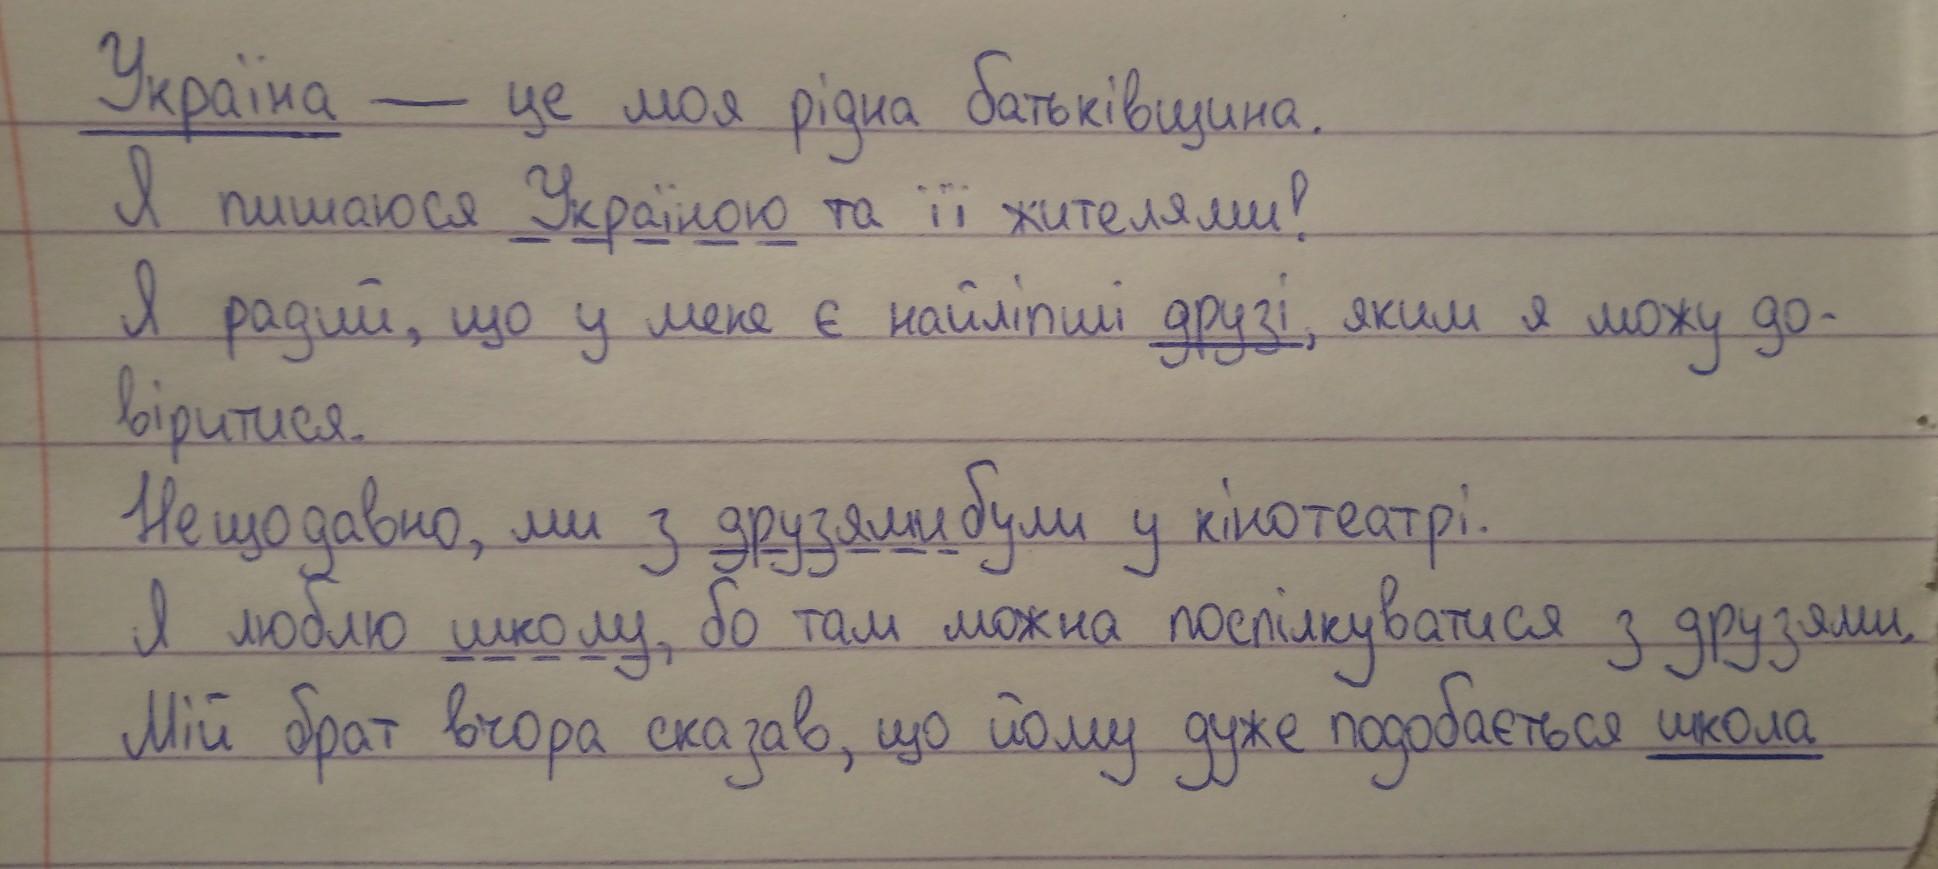 Україна — це моя рідна батьківщина.
Я пишаюся Україною та її жителями!
Я радий, що у мене є найліпші друзі, яким я можу до-
віритися.
Нещодавно, ми з друзями були у кінотеатрі.
Я люблю школу, бо там можна поспілкуватися з друзями.
Мій брат вчора сказав, що йому дуже подобається школа